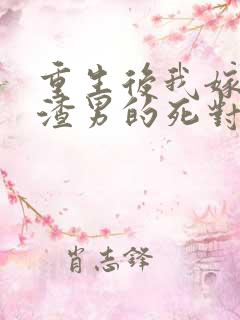 重生後我嫁
渣男的死對
肖志鋒